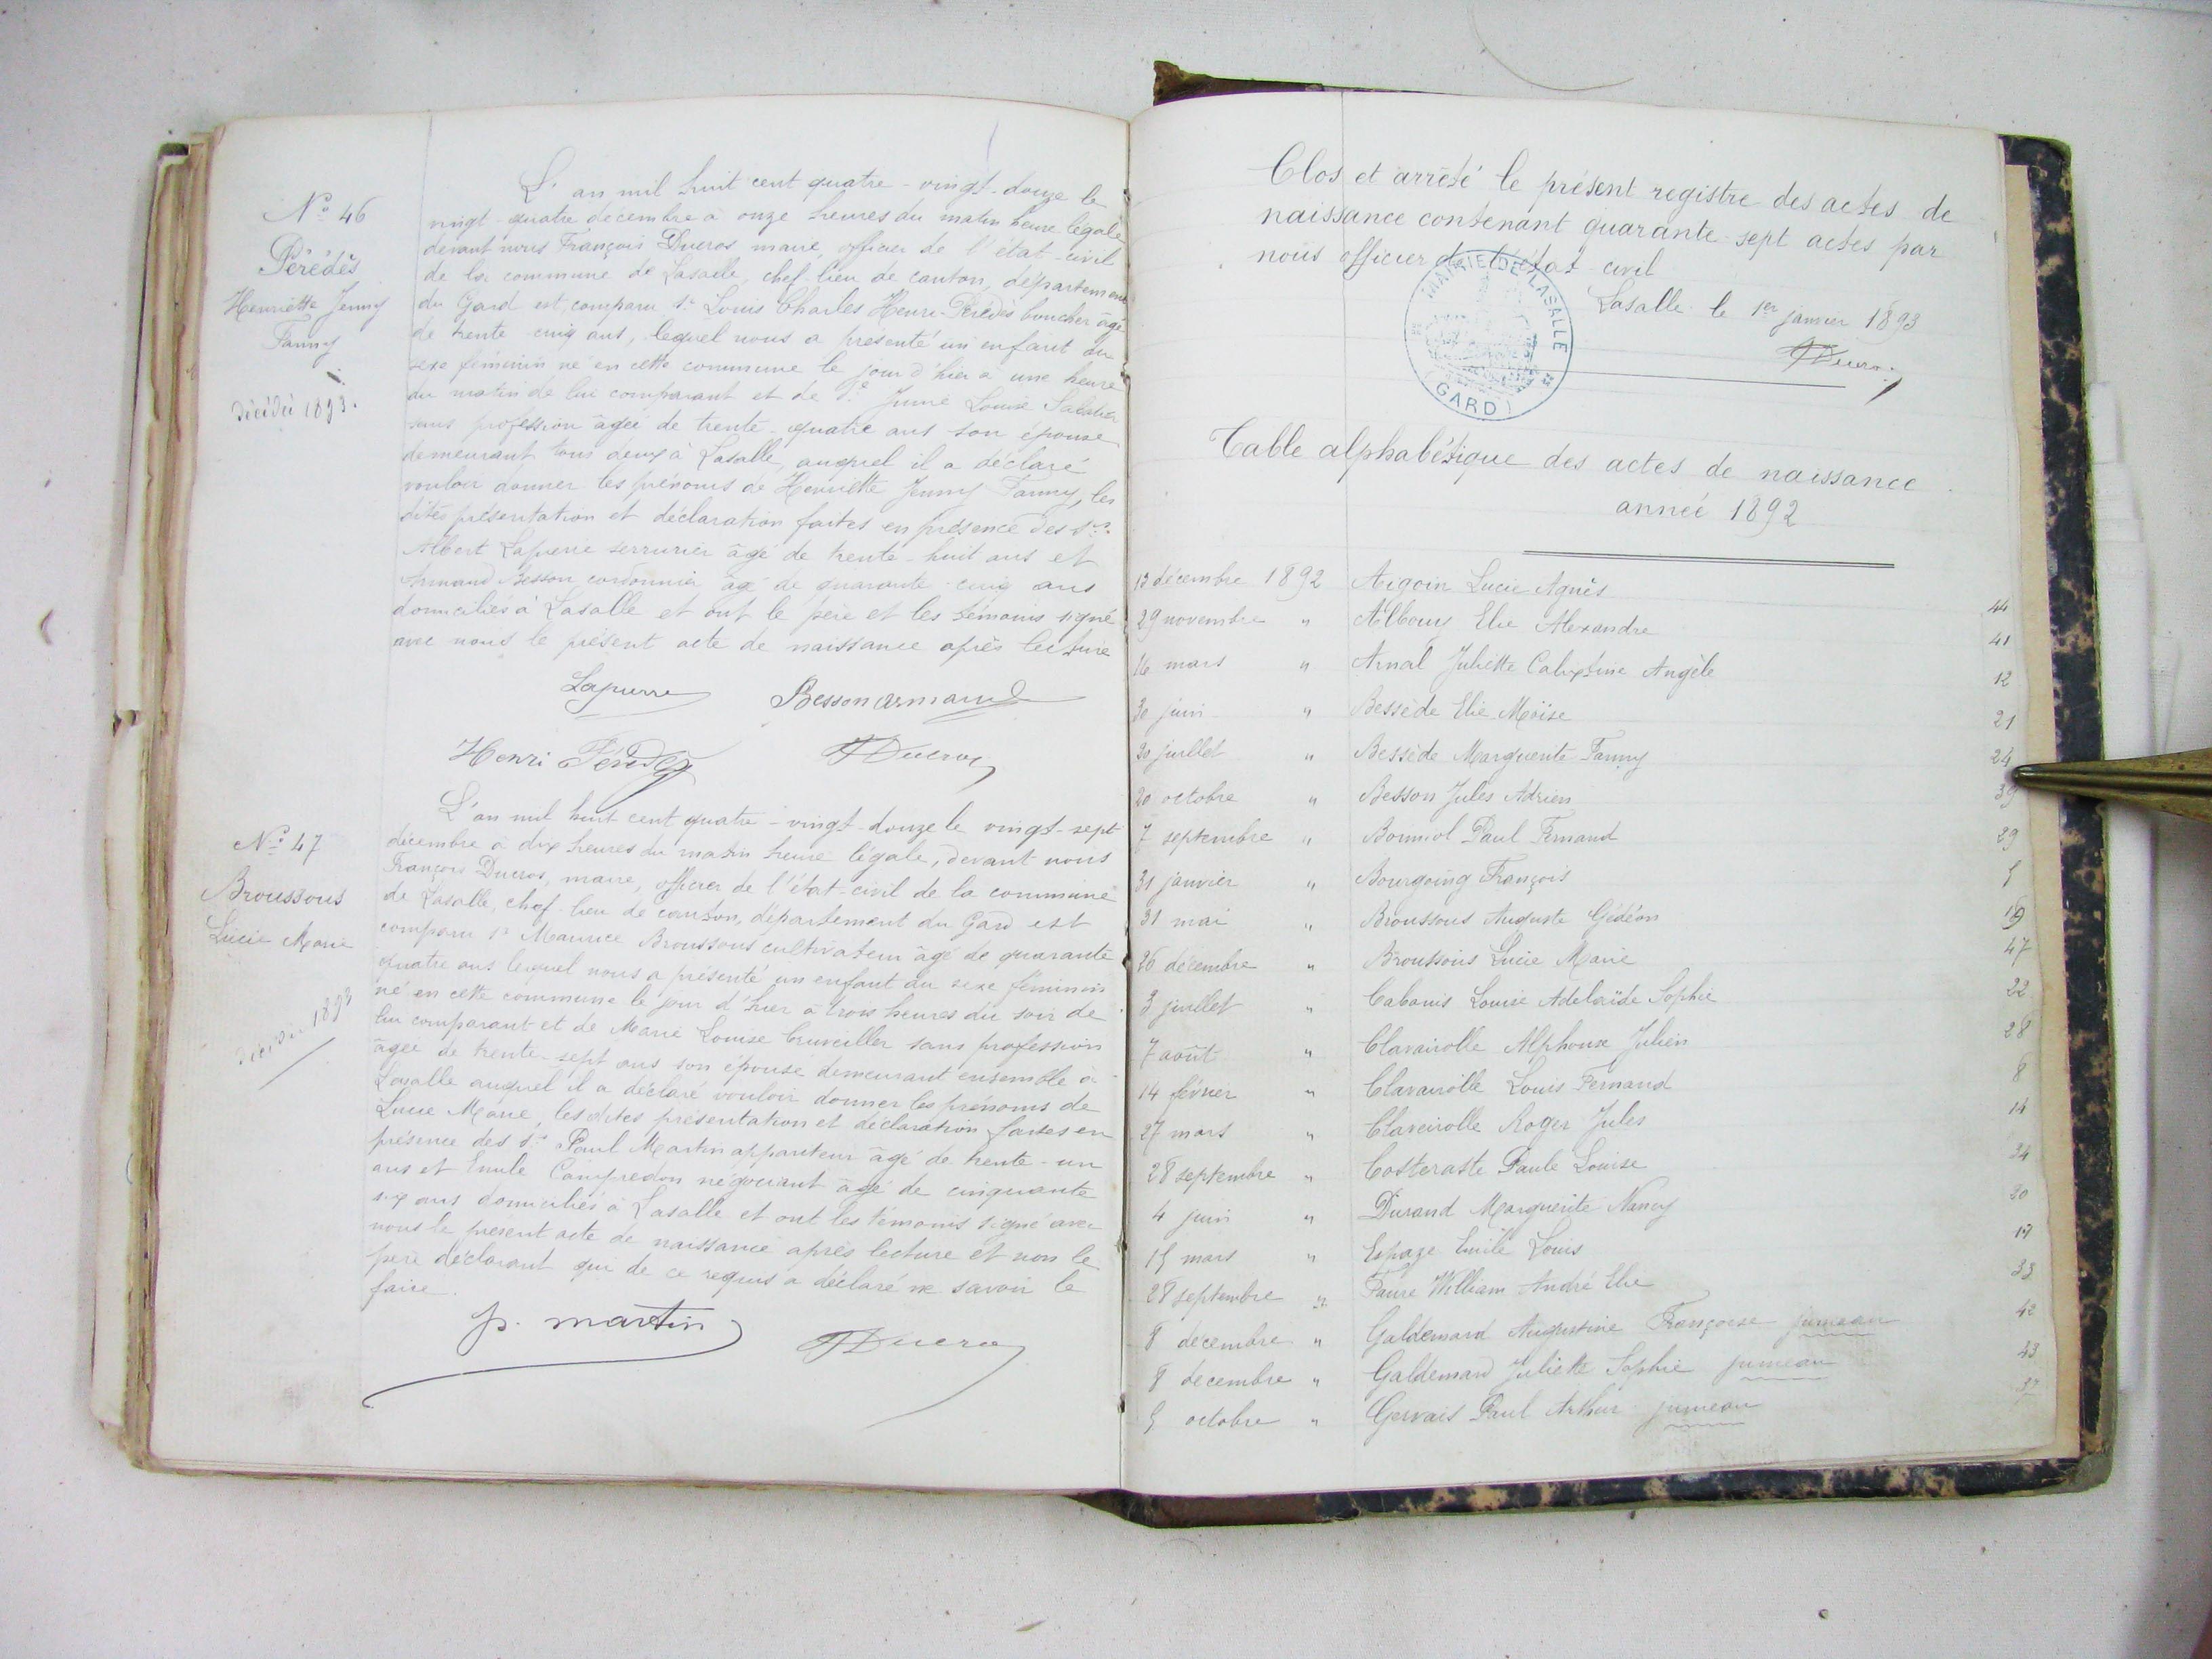 L'an mil huit cent quatre-vingt-douze le
vingt-quatre décembre à onze heures du matin heure légale
devant nous François Ducros maire, officier de l'état-civil
de la commune de Lasalle, chef-lieu de canton, département
du Gard est comparu sr Louis Charles Henri Pérédès boucher âgé
de trente-cinq ans, lequel nous a présenté un enfant du
sexe féminin né en cette commune le jour d'hier à une heure
du matin de lui comparant et de de Louise
sans profession âgée de trente-quatre ans son épouse
demeurant tous deux à Lasalle, auquel il a déclaré
vouloir donner les prénoms de Henriette Jenny Fanny, les
dites présentation et déclaration faites en présence des srs
Albert Lapierre serrurier âgé de trente-huit ans et
Armand Besson cordonnier âgé de quarante-cinq ans
domiciliés à Lasalle et ont le père et les témoins signé
avec nous le présent acte de naissance après lecture
No 46
Pérédès
Henriette Jenny
Fanny
Décédée 1893.
Lapierre Besson armand
Henri Pérédès FDucros
L'an mil huit cent quatre-vingt-douze le vingt-sept
décembre à dix heures du matin heure légale, devant nous
François Ducros, maire, officier de l'état-civil de la commune
de Lasalle, chef-lieu de canton, département du Gard est
comparu sr Maurice Broussous cultivateur âgé de quarante
quatre ans lequel nous a présenté un enfant du sexe féminin
né en cette commune le jour d'hier à trois heures du soir de
lui comparant et de Marie Louise Cruveiller sans profession
âgée de trente-sept ans son épouse demeurant ensemble à
Lasalle auquel il a déclaré vouloir donner les prénoms de
Lucie Marie, les dites présentation et déclaration faites en
présence des srs Paul Martin appariteur âgé de trente-un
ans et Emile Campredon négociant âgé de cinquante
six ans domiciliés à Lasalle et ont les témoins signé avec
nous le présent acte de naissance après lecture et non le
père déclarant qui de ce requis a déclaré ne savoir le
faire.
No 47
Broussous
Lucie Marie
Décédée 1893
p. martin FDucros
Clos et arrêté le présent registre des actes de
naissance contenant quarante-sept actes par
nous officier de l'état-civil
MAIRIE DE LASALLE
(GARD)
Lasalle le 1er janvier 1893
FDucros
Table alphabétique des actes de naissance
année 1892
13 décembre 1892 Aigoin Lucie Agnès 44
29 novembre " Albouy Elie Alexandre 41
16 mars " Arnal Juliette Calixtine Angèle 12
30 juin " Bessède Elie Moïse 21
20 juillet " Bessède Marguerite Fanny 24
20 octobre " Besson Jules Adrien 39
7 septembre " Bonniol Paul Fernand 29
31 janvier " Bourgoing François 5
31 mai " Broussous Auguste Gédéon 19
26 décembre " Broussous Lucie Marie 47
3 juillet " Cabanis Louise Adelaïde Sophie 22
7 août " Clavairolle Alphonse Julien 28
14 février " Clavairolle Louis Fernand 8
27 mars " Clavairolle Roger Jules 14
28 septembre " Costeraste Paule Louise 34
4 juin " Durand Marguerite Nancy 20
15 mars " Espaze Emile Louis
28 septembre " Faure William André Elie 33
8 décembre " Galdemard Augustine Françoise jumeau 42
8 décembre " Galdemard Juliette Sophie jumeau 43
5 octobre " Gervais Paul Arthur jumeau 37